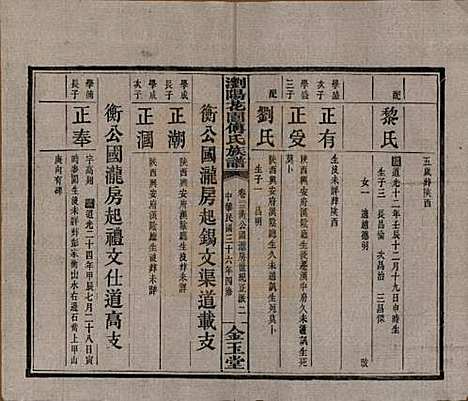 五歲歸陝西
配
黎氏
道光十二年壬辰十二月十九日申時生
生子三 長昌倫 次昌治 三昌傑
女一 適聶德明
歿
學備
次子
正有
生歿未詳葬陝西
學盛
三子
正受
陝西興安府漢陰廳生久未通訊生死
莫卜
配
劉氏
陝西興安府漢陰廳
生子一 昌明
衡公國瀧房起錫文渠道載支
瀏陽花園傅氏族譜
卷三衡公國瀧房世紀正派二
中華民國三十六年四修
金玉堂
學成
長子
正潮
陝西興安漢陰廳生歿葬未詳
學成
次子
正涸
陝西興安漢陰廳生歿葬未詳
衡公國瀧房起禮文仕道高支
學備
長子
正奉
字高則 道光二十四年甲辰七月二十八日寅
時生歿未詳葬彭家衝山水右邊石嘴上甲山
庚向有碑